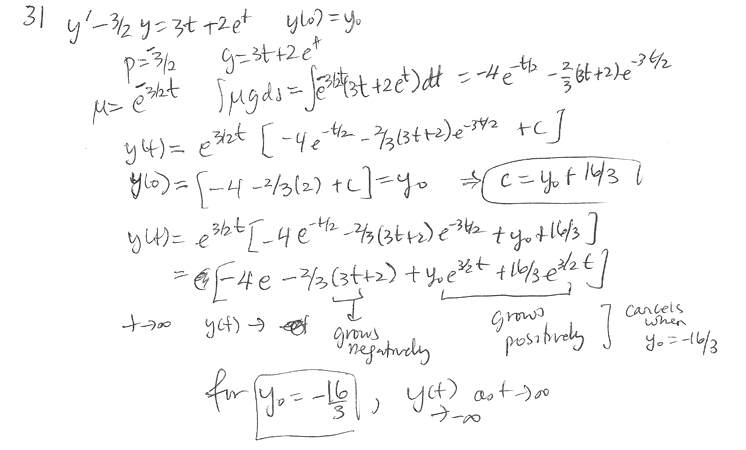 31 y' - 3/2 y = 3t + 2e^t y(0) = y₀
p = -3/2 g = 3t + 2e^t
μ = e^{-3/2t} ∫μgds = ∫e^{-3/2t}(3t+2e^t)dt = -4e^{-t/2} - 2/3(3t+2)e^{-3t/2}
y(t) = e^{3/2t} [-4e^{-t/2} - 2/3(3t+2)e^{-3t/2} + c]
y(0) = [-4 - 2/3(2) + c] = y₀ ⇒ c = y₀ + 16/3
y(t) = e^{3/2t} [-4e^{-t/2} - 2/3(3t+2)e^{-3t/2} + y₀ + 16/3]
= [-4e - 2/3(3t+2) + y₀e^{3/2t} + 16/3e^{3/2t}]
t→∞ y(t) → grows negatively grows positively ] cancels when y₀ = -16/3
for y₀ = -16/3, y(t) → -∞ as t→∞